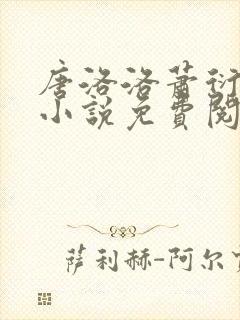 唐洛洛萧衍
小說免費閱
萨利赫-阿尔